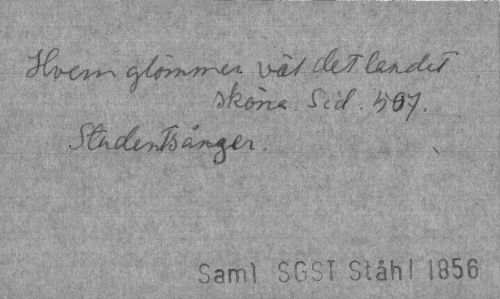 Hvem glömmer väl det landet
sköna. Sid. 507.
Studentsånger.
Saml SGST Ståhl 1856